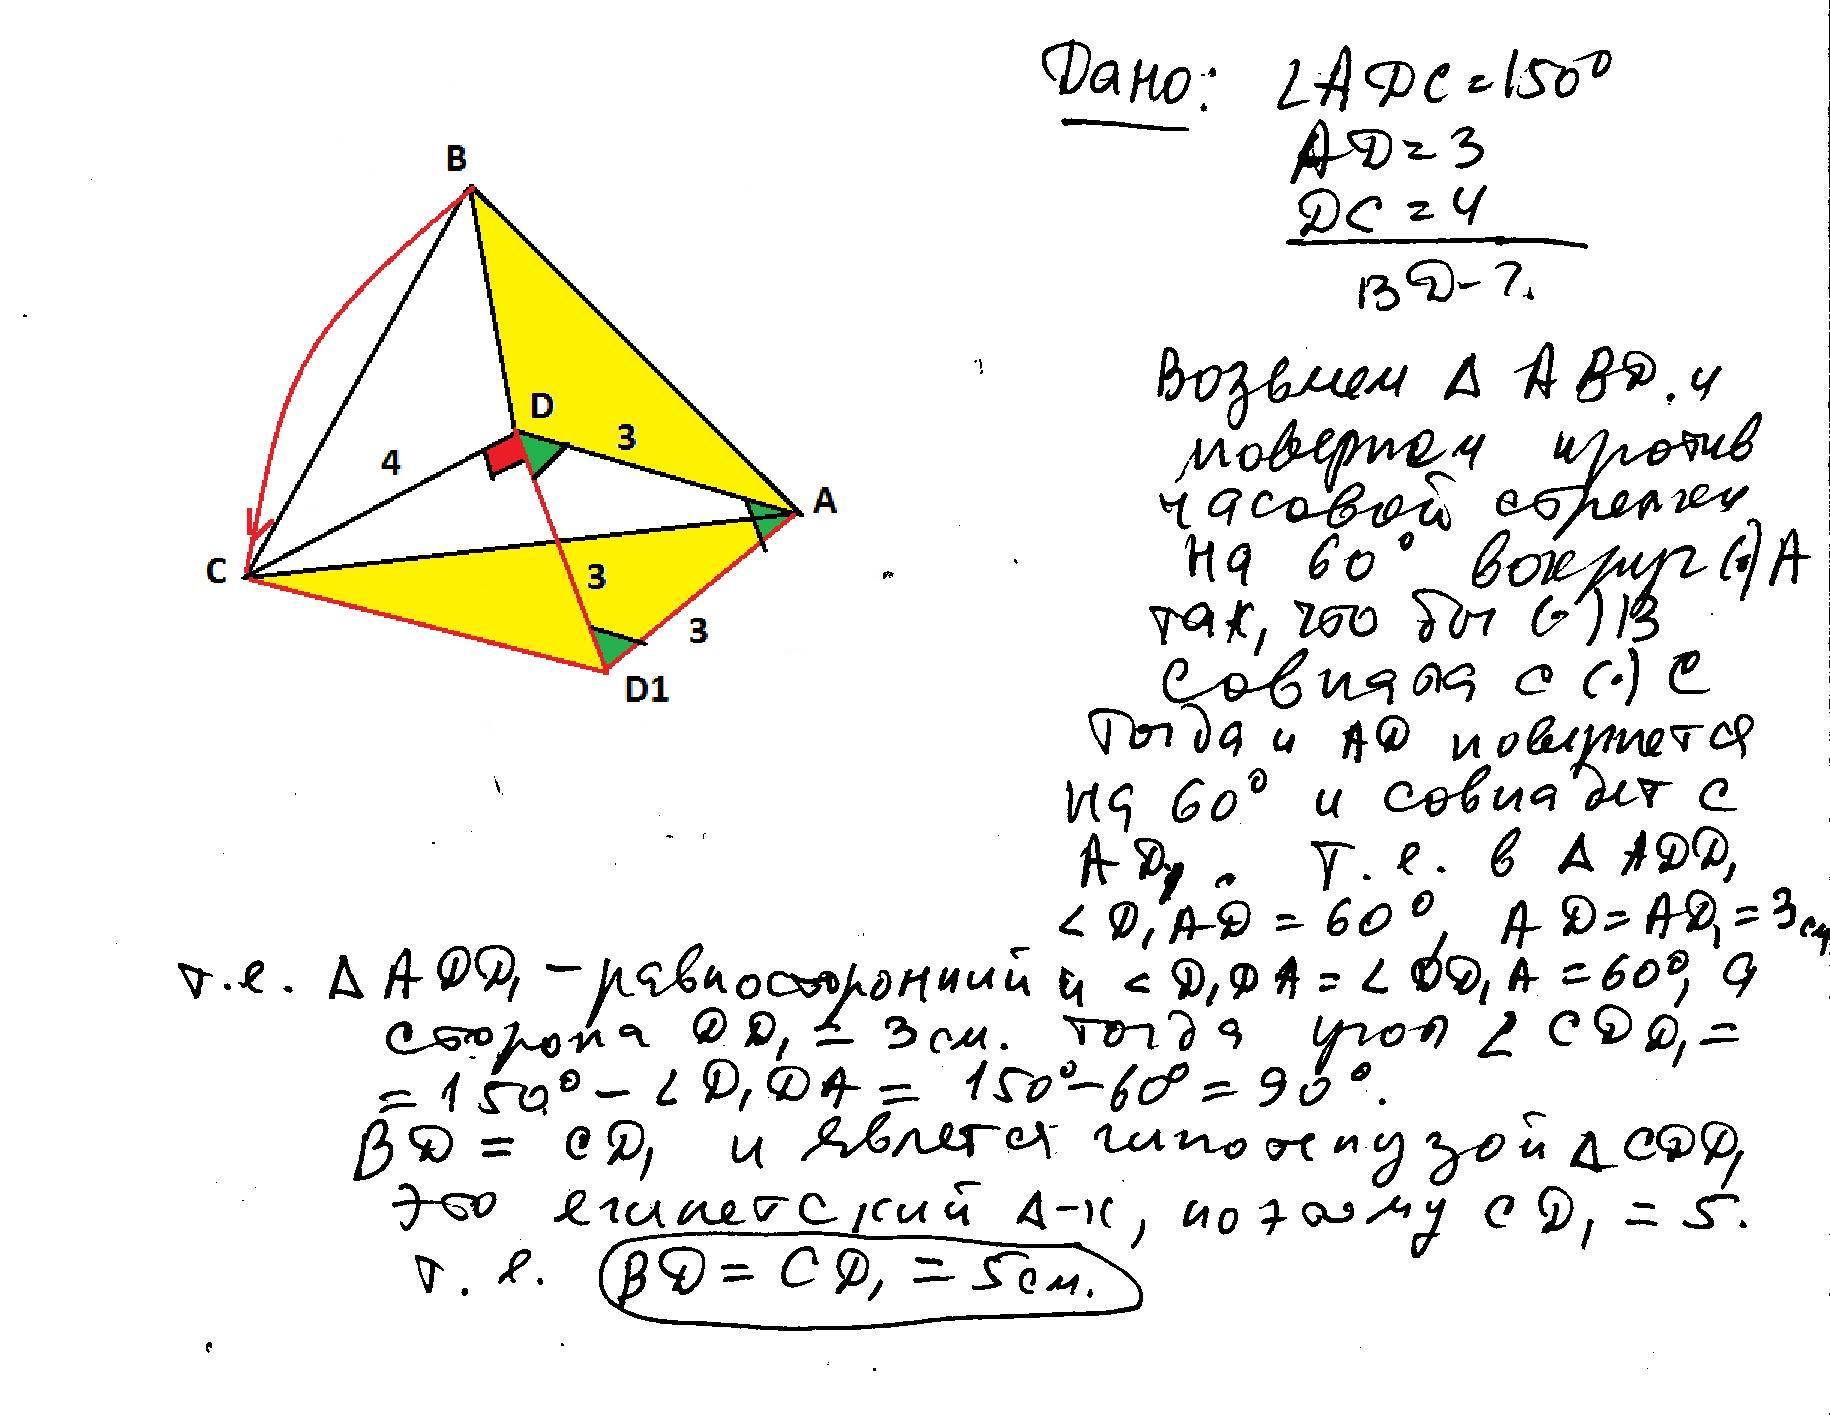 B
D
3
4
A
C
3
3
D1
Дано: ∠ADC=150°
AD=3
DC=4
BD-?.
Возьмем Δ ABD.и
повернем против
часовой стрелки
на 60° вокруг (.)A
так, что бы (.)B
совпала с (.) C
Тогда и AD повернется
на 60° и совпадет с
AD₁. Т.е. в Δ ADD₁
∠D₁AD=60°, AD=AD₁=3см
т.е. Δ ADD₁ - равносторонний и ∠D₁DA=∠DD₁A=60°, а
сторона DD₁=3см. Тогда угол ∠CDD₁=
=150°-∠D₁DA= 150°-60°=90°.
BD = CD₁ и явлется гипотенузой ΔCDD₁
это египетский Δ-к, поэтому CD₁=5.
т.е. BD=CD₁=5см.